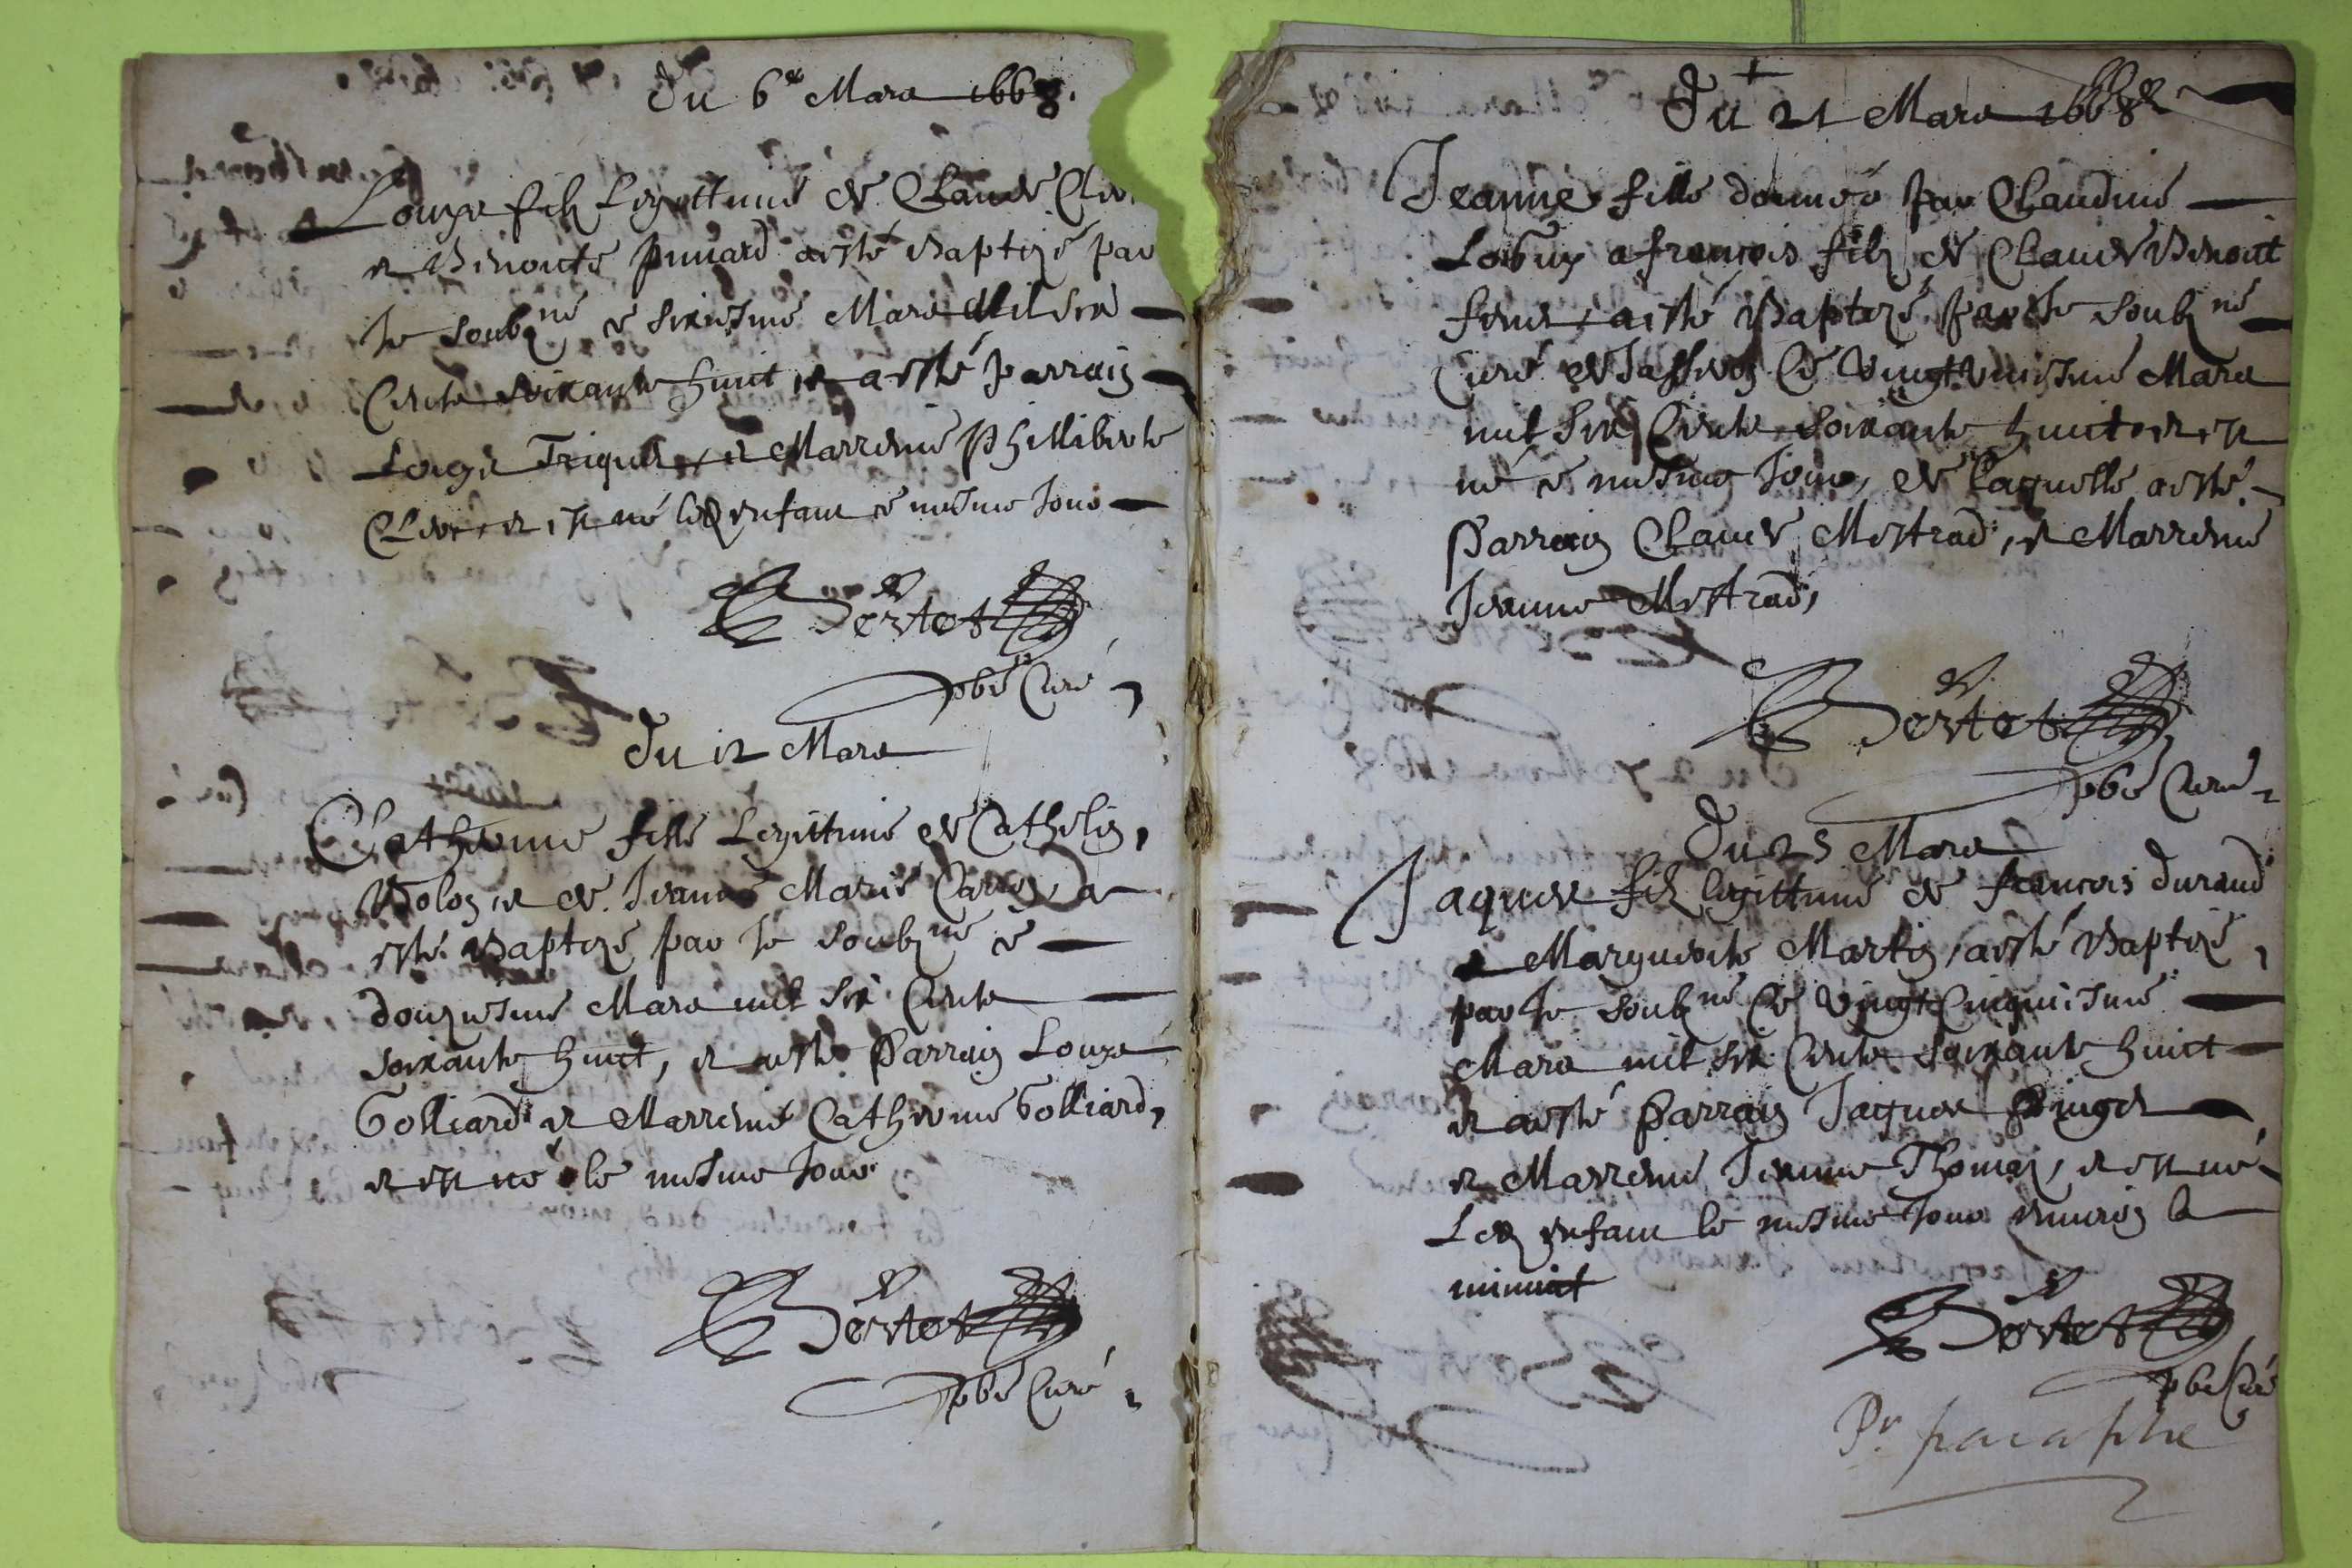 Du 6e Mars 1668.
Louys filz Legittime de Claude
et Benoite a esté Baptizé par
Je soubzné ce sixiesme Mars Mil six
Cents soixante huict, et a esté Parrain
Louys et Marreine Philliberte
et est né led enfant ce mesme Jour
De Bertet
pbre Curé
Du 12 Mars
Catherine fille Legittime de Cathelin
et de Jeanne Marie a
esté Baptizé par Je soubzné ce
douziesme Mars mil six Cents
soixante huict, et a esté Parrain Louys
Golliard et Marreine Catherine Golliard,
et est né le mesme Jour
De Bertet
pbre Curé
Du 21 Mars 1668
Jeanne fille donnée par Claudine
a francois filz de Claude Benoict
a esté Baptizé par Je soubzné
Curé de Ce vingt uniesme Mars
mil six Cents soixante huict et est
né ce mesme Jour, de laquelle a esté
Parrain Claude Mestrad, et Marreine
Jeanne Mestrad,
De Bertet
pbre Curé
Du 25 Mars
Jaques filz legittime de francois durand
et Marguerite Martin, a esté Baptizé,
par Je soubzné Ce vingt Cinquiesme
Mars mil six Cents soixante huict
et a esté Parrain Jaques
et Marreine Jeanne Thomas, et est né
Led enfant le mesme Jour environ la
minuict
De Bertet
pbre Curé
Pr. paraphe